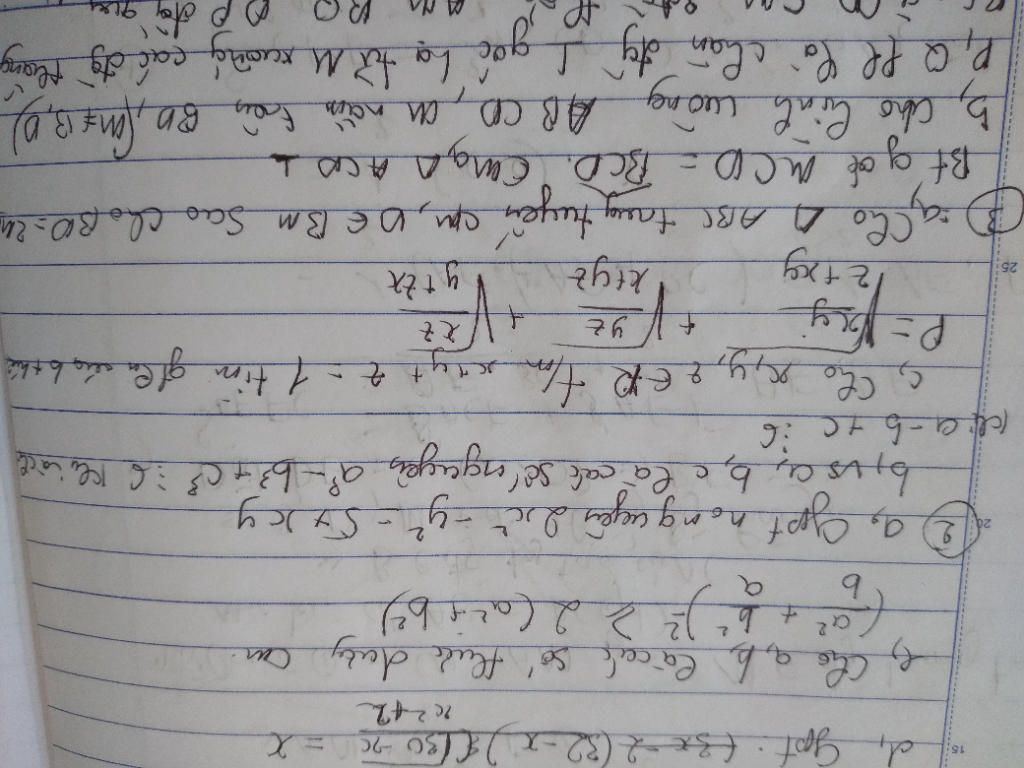 15
d, Gpt: (3x-2(32-x)) (30-x)/(x²+2) = x
e, Cho a, b, là các số thực dương Cm.
(a²/b + b²/a)² ≥ 2(a²+b²)
20
② a, Gpt no nguyên 2x² - y² = 5 + xy
b, vs a, b, c là các số nguyên a³ - b³ + c³ ⋮ 6 khi và chỉ
khi a - b + c ⋮ 6
c, Cho x, y, z ∈ R t/m x+y+z = 1 tìm
P = √(xy/(z+xy)) + √(yz/(x+yz)) + √(xz/(y+zx))
25
③ a, Cho Δ ABC trung tuyến cm, D ∈ Bm Sao cho BD = 2
Bt góc MCD = BCD. Cmg Δ ACD ⊥
b, Cho hình vuông ABCD, M nằm trên BD, (M ≠ B, D)
P, Q là chân đg ⊥ góc hạ từ M xuống các đg thẳng